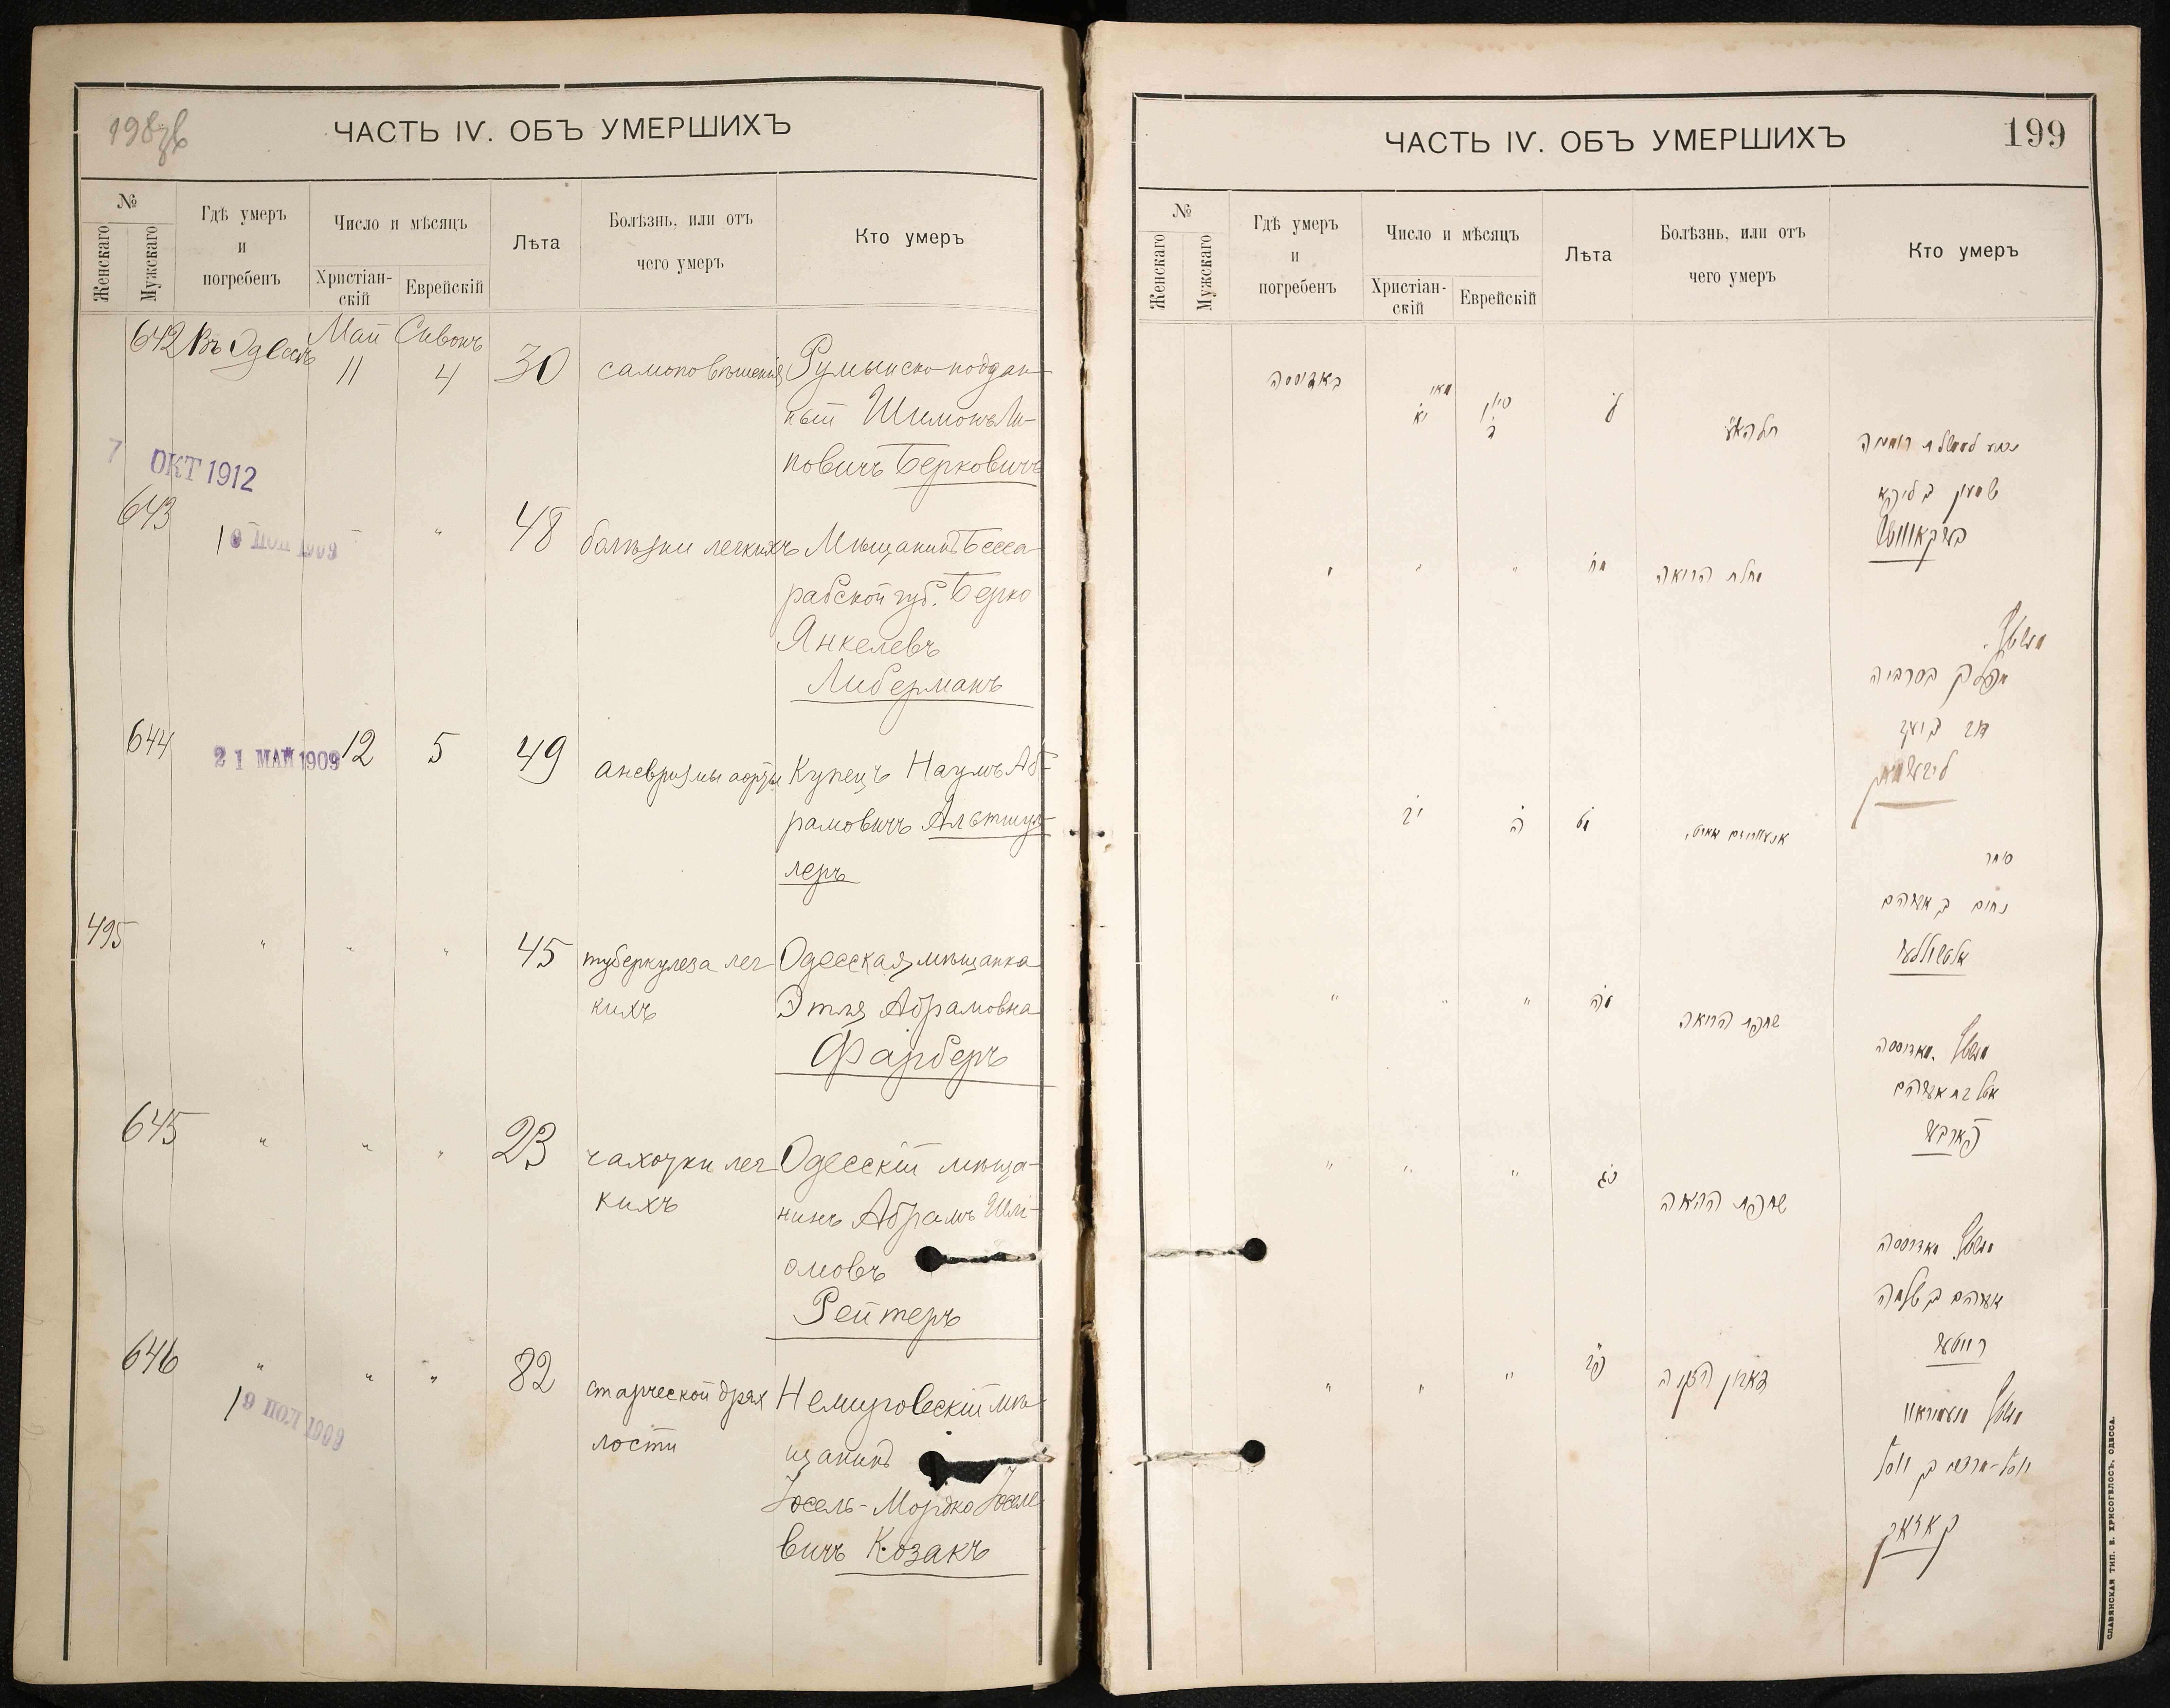 198об
ЧАСТЬ IV. ОБЪ УМЕРШИХЪ
№
Женскаго
Мужскаго
Гдѣ умеръ
и
погребенъ
Число и мѣсяцъ
Христіан-
скій
Еврейскій
Лѣта
Болѣзнь, или отъ
чего умеръ
Кто умеръ
642 Въ Одессѣ Май Сивонъ
11 4 30 самоповѣшенія Румынско подан-
ный Шимонъ Ли-
повичъ Берковичъ
7 ОКТ 1912
643 " 48 болѣзни легкихъ Мѣщанинъ Бесса-
19 1909
рабской губ. Берко
Янкелевъ
Либерманъ
644 21 МАЙ 1909 12 5 49 аневризмы аорты Купецъ Наумъ Аб-
рамовичъ Альтшул-
леръ
495 " " " 45 туберкулеза лег- Одесская мѣщанка
кихъ Этля Абрамовна
Фарберъ
645 " " " 23 чахотки лег- Одесскій мѣща-
кихъ нинъ Абрамъ Шлі-
омовъ
Рейтеръ
646 " " " 82 старческой дрях- Немировскій мѣ-
19 1909
лости щанинъ
Іосель-Мордко Іосе
вичъ Козакъ
ЧАСТЬ IV. ОБЪ УМЕРШИХЪ
199
№
Женскаго
Мужскаго
Гдѣ умеръ
и
погребенъ
Число и мѣсяцъ
Христіан-
скій
Еврейскій
Лѣта
Болѣзнь, или отъ
чего умеръ
Кто умеръ
באדוססה מאי סיון
יא ד ל
שמעון ב ליפא
בערקאוויטש
" " " מח מחלת הריאה
בסרביה
דוב ב יעקב
ליבערמאן
יב ה מט
סוחר
נחום ב אברהם
אלטשוללער
" " " מה שחפת הריאה
מאדוססה
אטל בת אברהם
פארבער
" " " כג שחפת הריאה
מאדוססה
אברהם ב שלמה
רייטער
" " " פב
יוסל-מרדכי ב יוסל
קאזאק
СЛАВЯНСКАЯ ТИП. Е. ХРИСОГЕЛОСЪ, ОДЕССА.